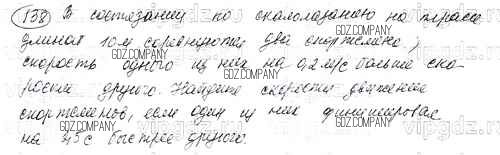 138) В состязании по скалолазанию на трассе
длиной 10м соревнуются два спортсмена,
скорость одного из них на 0,2 м/с больше ско-
рости другого. Найдите скорости движения
спортсменов, если один из них финишировал
на 45с быстрее другого.
GDZ.COMPANY
GDZ.COMPANY
GDZ.COMPANY
GDZ.COMPANY